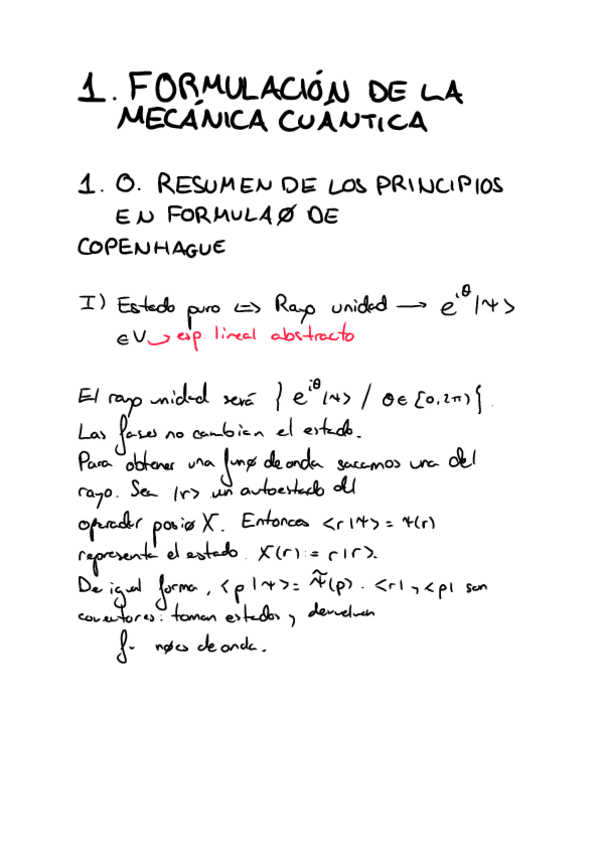 1. FORMULACIÓN DE LA
MECÁNICA CUÁNTICA
1. 0. RESUMEN DE LOS PRINCIPIOS
EN FORMULAØ DE
COPENHAGUE
I) Estado puro <=> Rayo unidad → e^{iθ}|Ψ>
∈V → esp. lineal abstracto
El rayo unidad será { e^{iθ}|Ψ> / θ∈[0,2π)}.
Las fases no cambian el estado.
Para obtener una funø de onda sacamos una del
rayo. Sea |r> un autoestado del
operador posiø X. Entonces <r|Ψ> = Ψ(r)
representa el estado. X(r) := r|r>.
De igual forma, <p|Ψ> = Ψ̃(p). <r|, <p| son
covectores: toman estados y devuelven
f- nøes de onda.